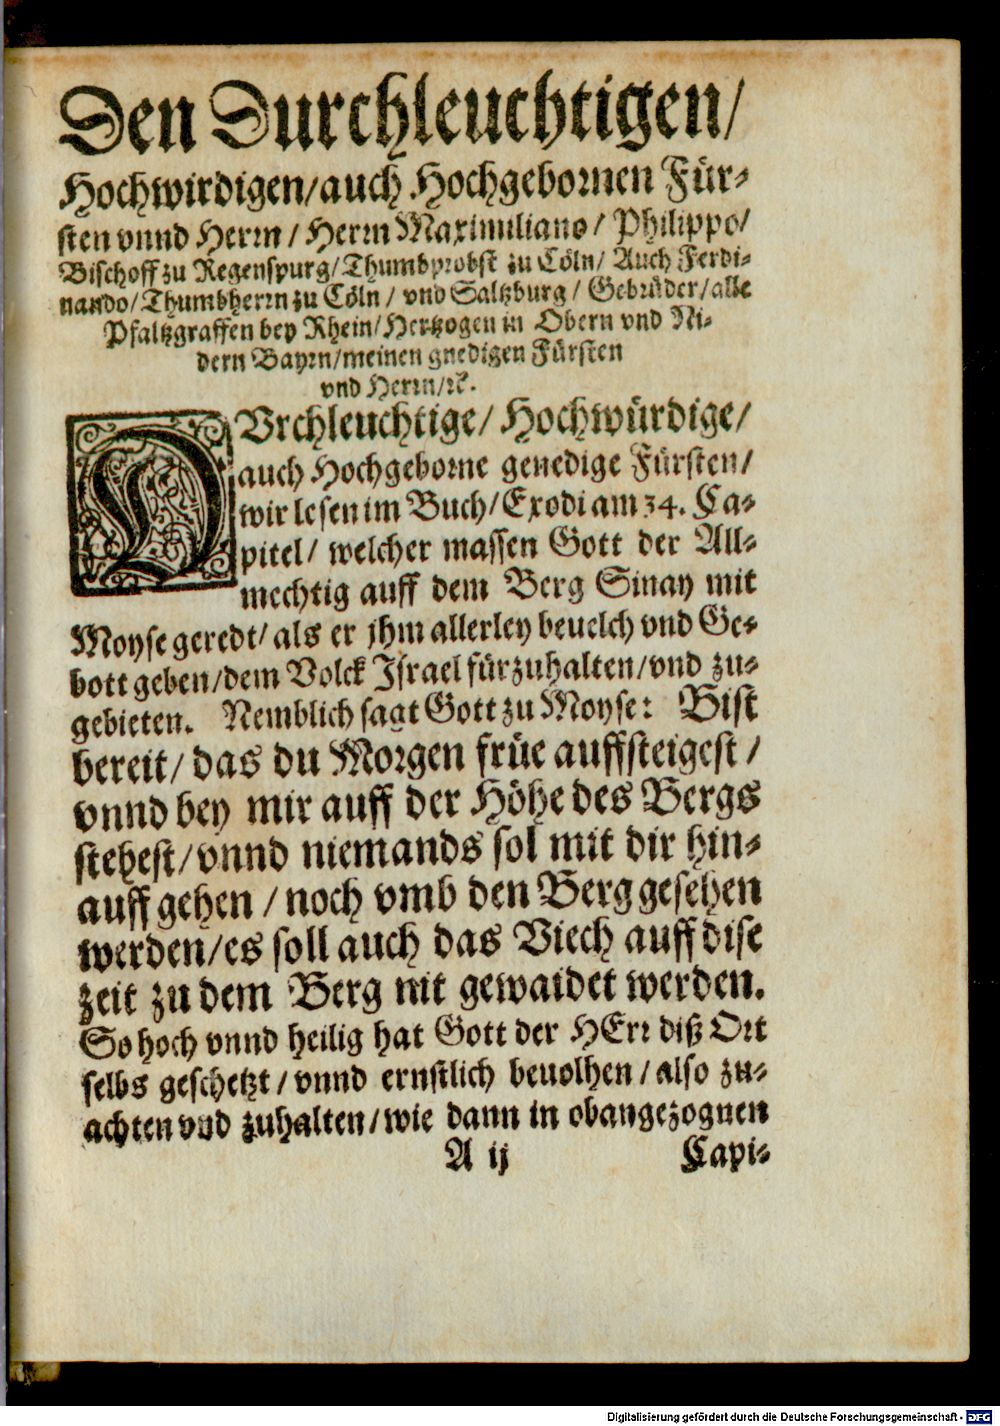 Den Durchleuchtigen/
Hochwirdigen/auch Hochgebornen Für-
sten vnnd Herrn/ Herrn Maximiliano/ Philippo/
Bischoff zu Regenspurg/Thumbprobst zu Cöln/ Auch Ferdi-
nando/Thumbherrn zu Cöln/ vnd Saltzburg/ Gebrüder/alle
Pfaltzgraffen bey Rhein/Hertzogen in Obern vnd Ni-
dern Bayrn/meinen gnedigen Fürsten
vnd Herrn/ꝛc.
DVrchleuchtige/ Hochwürdige/
auch Hochgeborne genedige Fürsten/
wir lesen im Buch/Exodi am 34. Ca-
pitel/ welcher massen Gott der All-
mechtig auff dem Berg Sinay mit
Moyse geredt/als er jhm allerley beuelch vnd Ge-
bott geben/dem Volck Israel fürzuhalten/vnd zu-
gebieten. Nemblich sagt Gott zu Moyse: Bist
bereit/das du Morgen früe auffsteigest/
vnnd bey mir auff der Höhe des Bergs
stehest/vnnd niemands sol mit dir hin-
auff gehen/noch vmb den Berg gesehen
werden/es soll auch das Viech auff dise
zeit zu dem Berg nit gewaidet werden.
So hoch vnnd heilig hat Gott der HErr diß Ort
selbs geschetzt/vnnd ernstlich beuolhen/also zu-
achten vnd zuhalten/wie dann in obangezognen
A ij Capi-
Digitalisierung gefördert durch die Deutsche Forschungsgemeinschaft - DFG